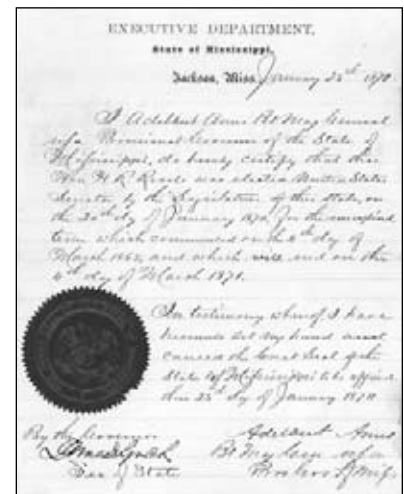 EXECUTIVE DEPARTMENT,
State of Mississippi,
Jackson, Miss. January 25th 1870.
I Adelbert Ames Bt Maj General
U.S.A. Provisional Governor of the State of
Mississippi, do hereby certify that the
Hon H R Revels was elected United States
Senator by the Legislature of this state, on
the 20th day of January 1870, for the unexpired
term which commenced on the 4th day of
March 1865, and which will end on the
4th day of March 1871.
In testimony whereof, I have
hereunto set my hand and
caused the Great Seal of the
State of Mississippi to be affixed
this 25th day of January 1870
By the Governor
Adelbert Ames
Bt Maj Gen U.S.A
Sec of State